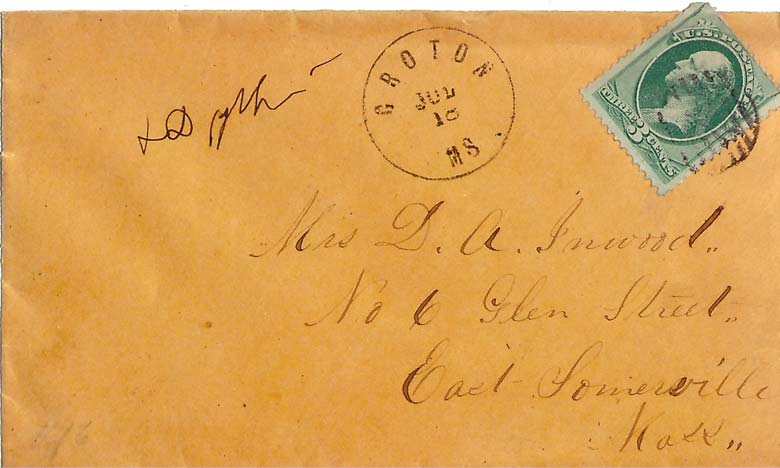 GROTON
JUL
18
MS
U.S. POSTAGE
THREE 3 CENTS
Mrs D. A. Inwood,,
No 6 Glen Street,,
East Somerville
Mass,,